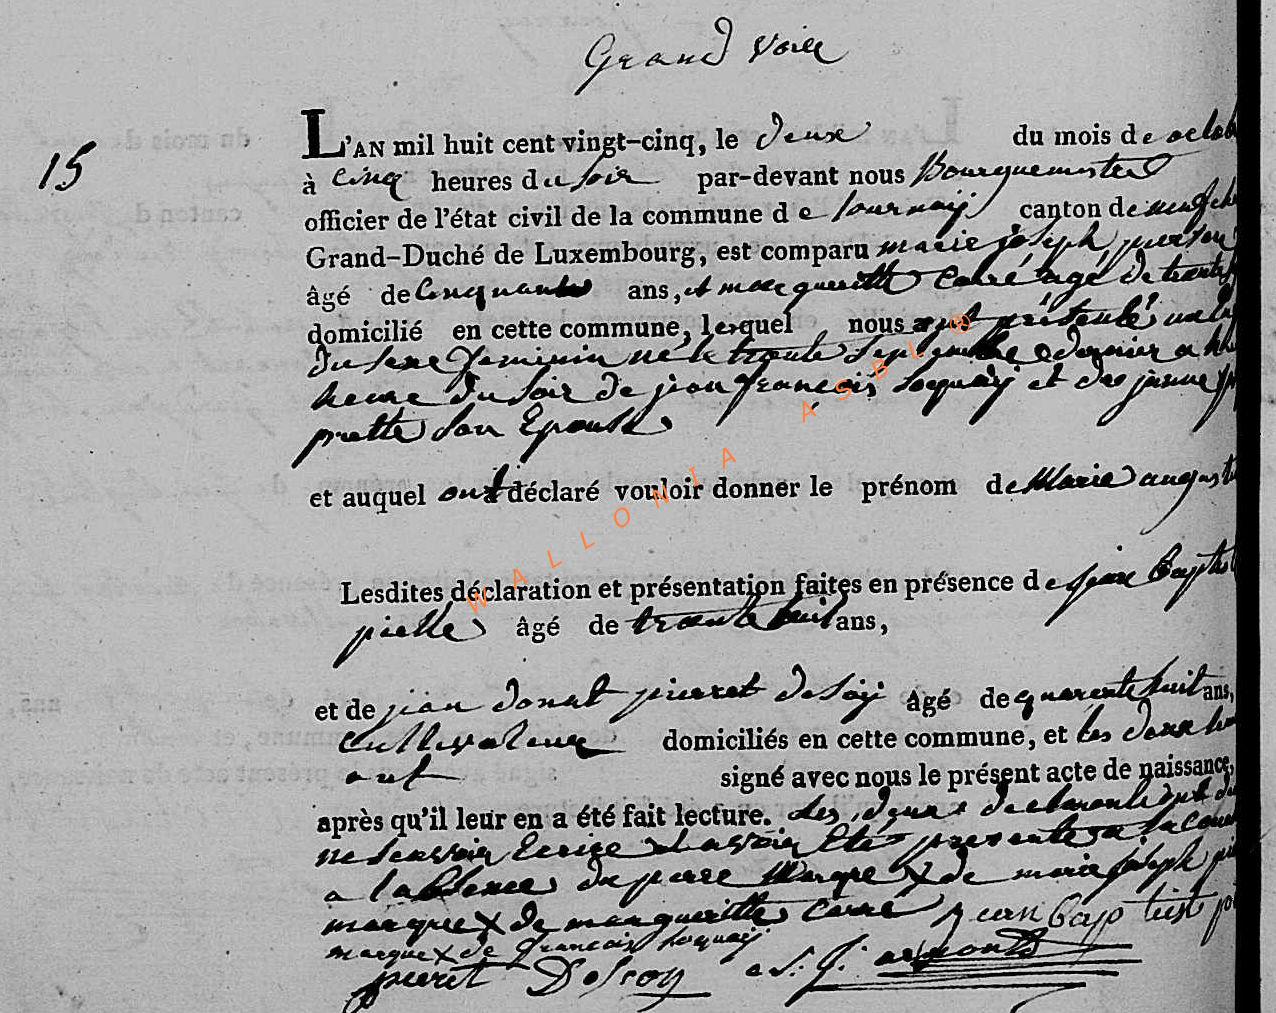 Grand voir
15
L'AN mil huit cent vingt-cinq, le deux du mois de octob
à cinq heures du soir par-devant nous Bourguemestre
officier de l'état civil de la commune de tournay canton de neufch
Grand-Duché de Luxembourg, est comparu marie joseph
âgé de Cinquante ans, et margueritte carré agé de trente
domicilié en cette commune, lesquel nous ont présenté un
du sexe feminin né le trente septembre dernier a
heure du soir de jean françois Soquay et de jeanne
prette son Epouse
et auquel ont déclaré vouloir donner le prénom de Marie august
Lesdites déclaration et présentation faites en présence de jean baptist
pielle âgé de trente huit ans,
et de jean donat pieret desoy âgé de quarente huit ans,
Cultivateur domiciliés en cette commune, et les deux
ont signé avec nous le présent acte de naissance,
après qu'il leur en a été fait lecture. Les deux declarante ont
ne scavoir Ecrire
a l'absence du pere Marque X de marie joseph
marque X de margueritte carré jean baptist
marque X de francois soquay
pieret Desoy
WALLONIA ASBL ®